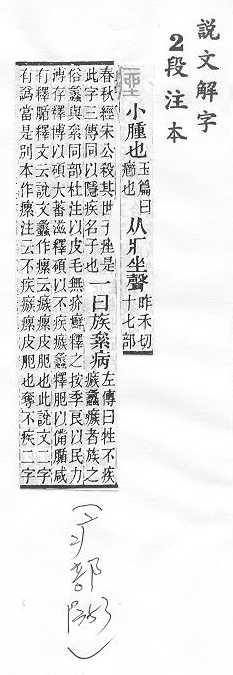 說文解字
2段注本
痤
小腫也
玉篇曰
癤也
从疒坐聲
昨禾切
十七部
春秋經宋公殺其世子痤是
此字三傳同以隱疾名子也
一曰族絫病
左傳曰牲不疾
瘯蠡瘯者族之
俗蠡與絫同部杜注以皮毛無疥癬釋之按季良以民力
溥存釋博以碩大蕃滋釋碩以不疾瘯蠡釋肥以備腯咸
有釋腯釋文云說文蠡作瘰云瘯瘰皮肥也此說文二字
有譌當是別本作瘰注云不疾瘯瘰皮肥也奪不疾二字
(疒部